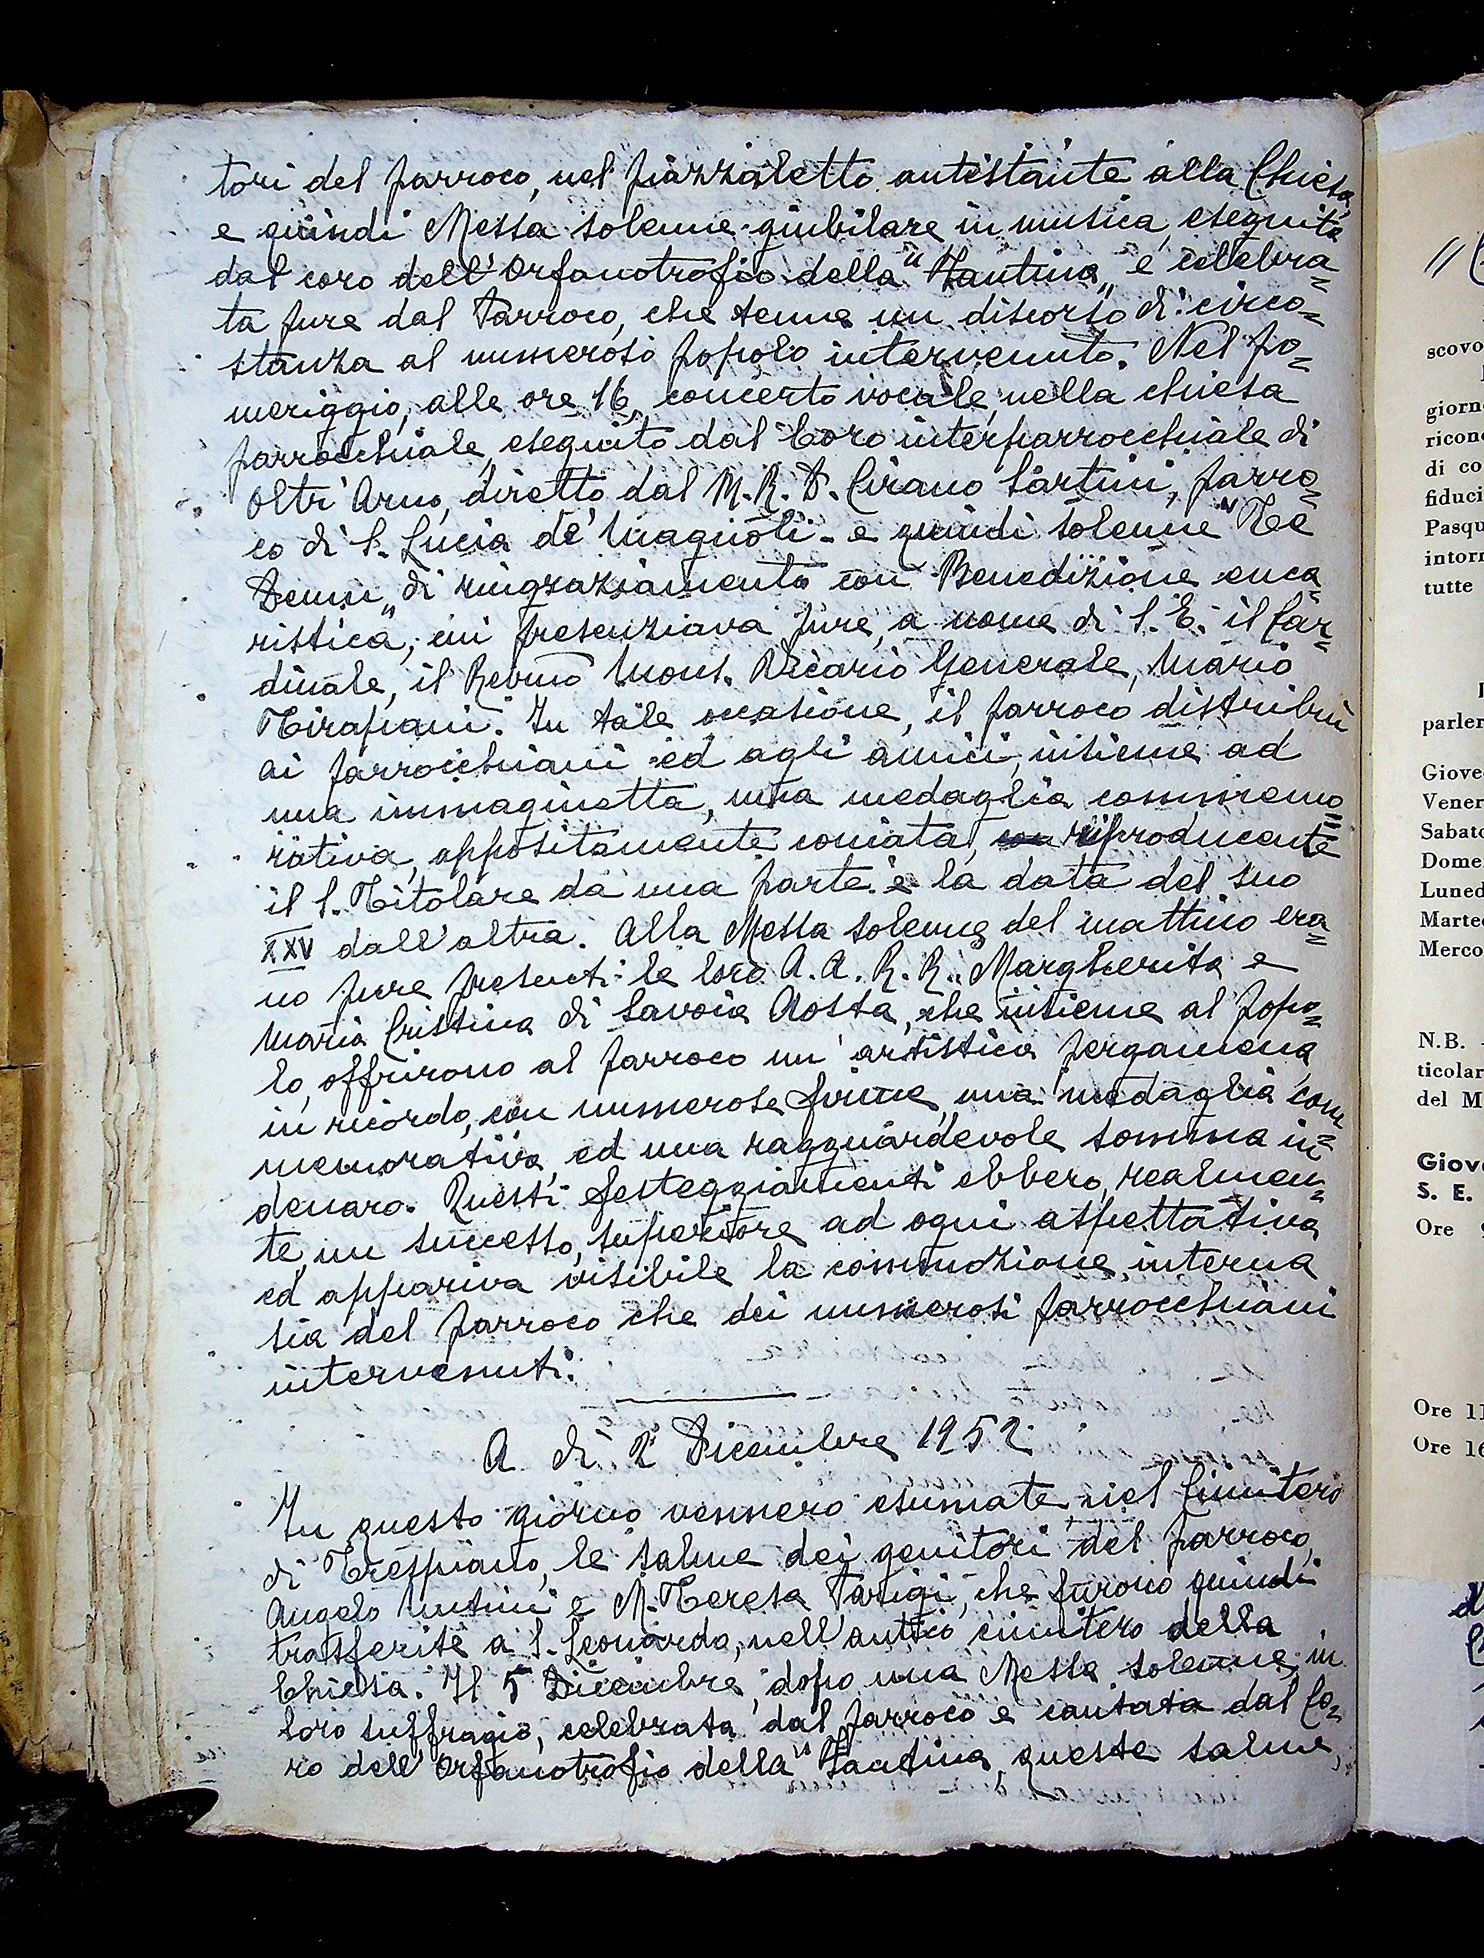 tori del parroco, nel piazzaletto antistante alla Chiesa,
e quindi Messa solenne giubilare in musica, eseguita
dal coro dell'Orfanotrofio della "Fantina" e celebra=
ta pure dal Parroco, che tenne un discorso di circo=
stanza al numeroso popolo intervenuto. Nel po=
meriggio, alle ore 16, concerto vocale, nella chiesa
parrocchiale, eseguito dal Coro interparrocchiale di
Oltr'Arno, diretto dal M. R. D. Cirano Sartini, parro=
co di S. Lucia de' Magnoli - e quindi solenne "Te
Deum" di ringraziamento con Benedizione euca=
ristica, cui presenziava pure, a nome di S. E. il Car=
dinale, il Revmo Mons. Vicario Generale, Mario
Tirapani. In tale occasione, il parroco distribuì
ai parrocchiani ed agli amici, insieme ad
una immaginetta, una medaglia commemo=
rativa, appositamente coniata, con riproducente
il S. Titolare da una parte e la data del suo
XXV dall'altra. Alla Messa solenne del mattino era=
no pure presenti le loro A. A. R. R. Margherita e
Maria Cristina di Savoia Aosta, che insieme al popo=
lo, offrirono al parroco un'artistica pergamena
in ricordo, con numerose firme, una medaglia com=
memorativa, ed una ragguardevole somma in
denaro. Questi festeggiamenti ebbero, realmen=
te, un successo, superiore ad ogni aspettativa
ed appariva visibile la commozione interna
sia del parroco che dei numerosi parrocchiani
intervenuti.
A dì 2 Dicembre 1952
In questo giorno vennero esumate nel Cimitero
di Trespiano, le salme dei genitori del parroco,
Angelo e M. Teresa Parigi, che furono quindi
trasferite a S. Leonardo, nell'antico cimitero della
Chiesa. Il 5 Dicembre, dopo una Messa solenne, in
loro suffragio, celebrata dal parroco e cantata dal Co=
ro dell'Orfanotrofio della "Fantina, queste salme,
scovo
giorn
ricon
di co
fiduci
Pasqu
intorn
tutte
parler
Giove
Vener
Sabato
Dome
Luned
Marte
Merco
N.B. -
ticolar
del M
Giove
S. E.
Ore 9
Ore 11
Ore 16